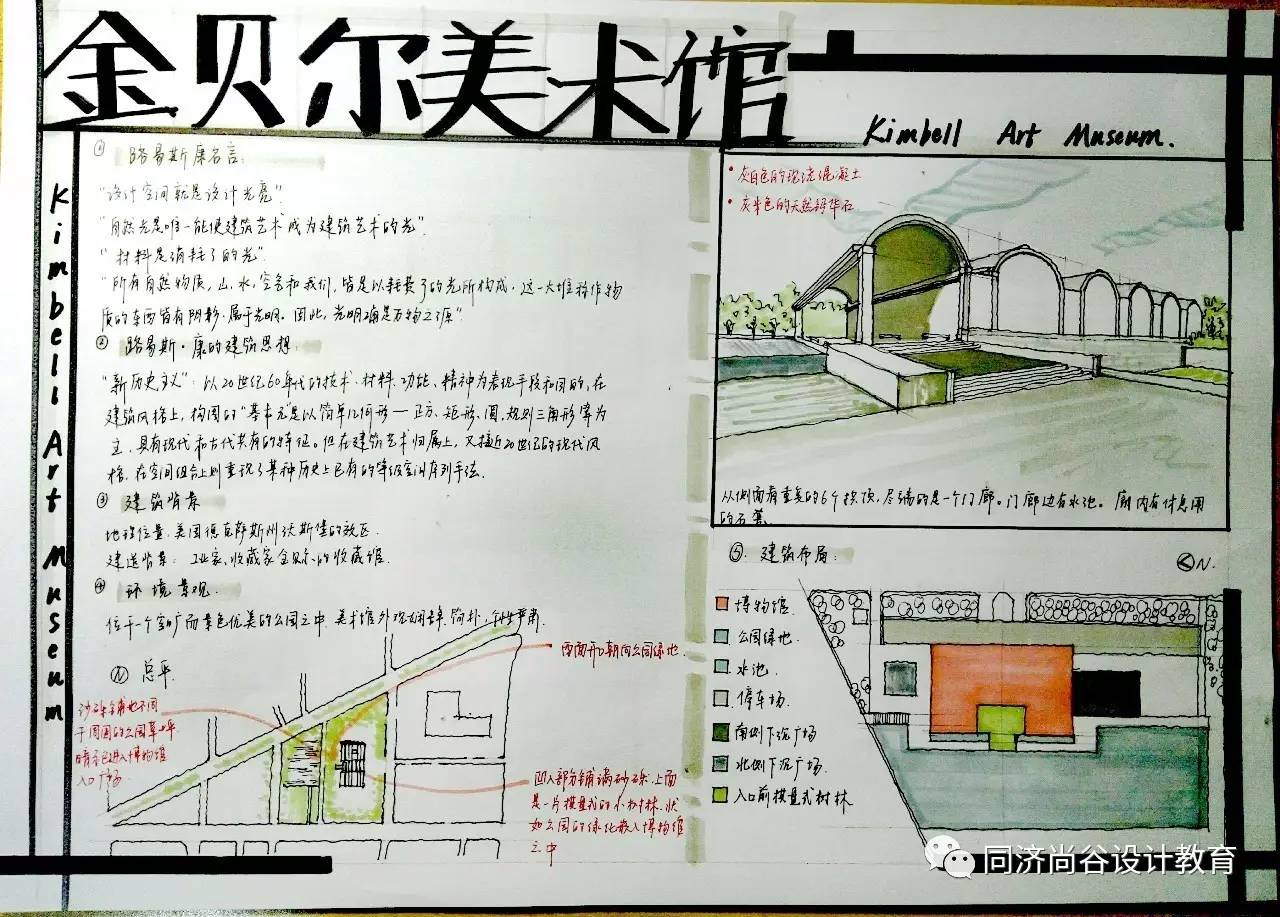 金贝尔美术馆
Kimbell Art Museum.
Kimbell Art Museum
① 路易斯康名言:
"设计空间就是设计光亮"
"自然光是唯一能使建筑艺术成为建筑艺术的光".
"材料是消耗了的光".
"所有自然物质，山、水，空气和我们，皆是以耗费了的光所构成，这一大堆称作物
质的东西皆有阴影，属于光明。因此，光明确是万物之源"
② 路易斯·康的建筑思想:
"新历史主义": 以20世纪60年代的技术、材料、功能、精神为表现手段和目的，在
建筑风格上，构图的"基本元是以简单几何形—正方、矩形、圆、规则三角形等为
主，具有现代和古代共有的特征。但在建筑艺术归属上，又接近20世纪的现代风
格，在空间组合上则重现了某种历史上已有的等级空间序列手法.
③ 建筑背景
地理位置: 美国德克萨斯州沃斯堡的效区.
建造背景: 工业家、收藏家金贝尔的收藏馆.
④ 环境景观.
位于一个空旷而景色优美的公园之中，美术馆外观闭簡朴，
总平.
西面开口朝向公园绿地.
沙砾铺地不同
于周围的公园草坪
暗示已进入博物馆
入口广场
凹入部分铺满砂砾，上面
是一片模量式的小树林，状
如公园的绿化嵌入博物馆
之中
• 灰白色的现浇混凝土
• 灰米色的天然钙华石
从侧面看重复的6个拱顶，尽端的是一个门廊。门廊边有水池。廊内有休息用
的石凳.
⑤ 建筑布局:
N.
博物馆.
公园绿地.
水池.
停车场.
南侧下沉广场
北侧下沉广场.
入口前模量式树林
同济尚谷设计教育